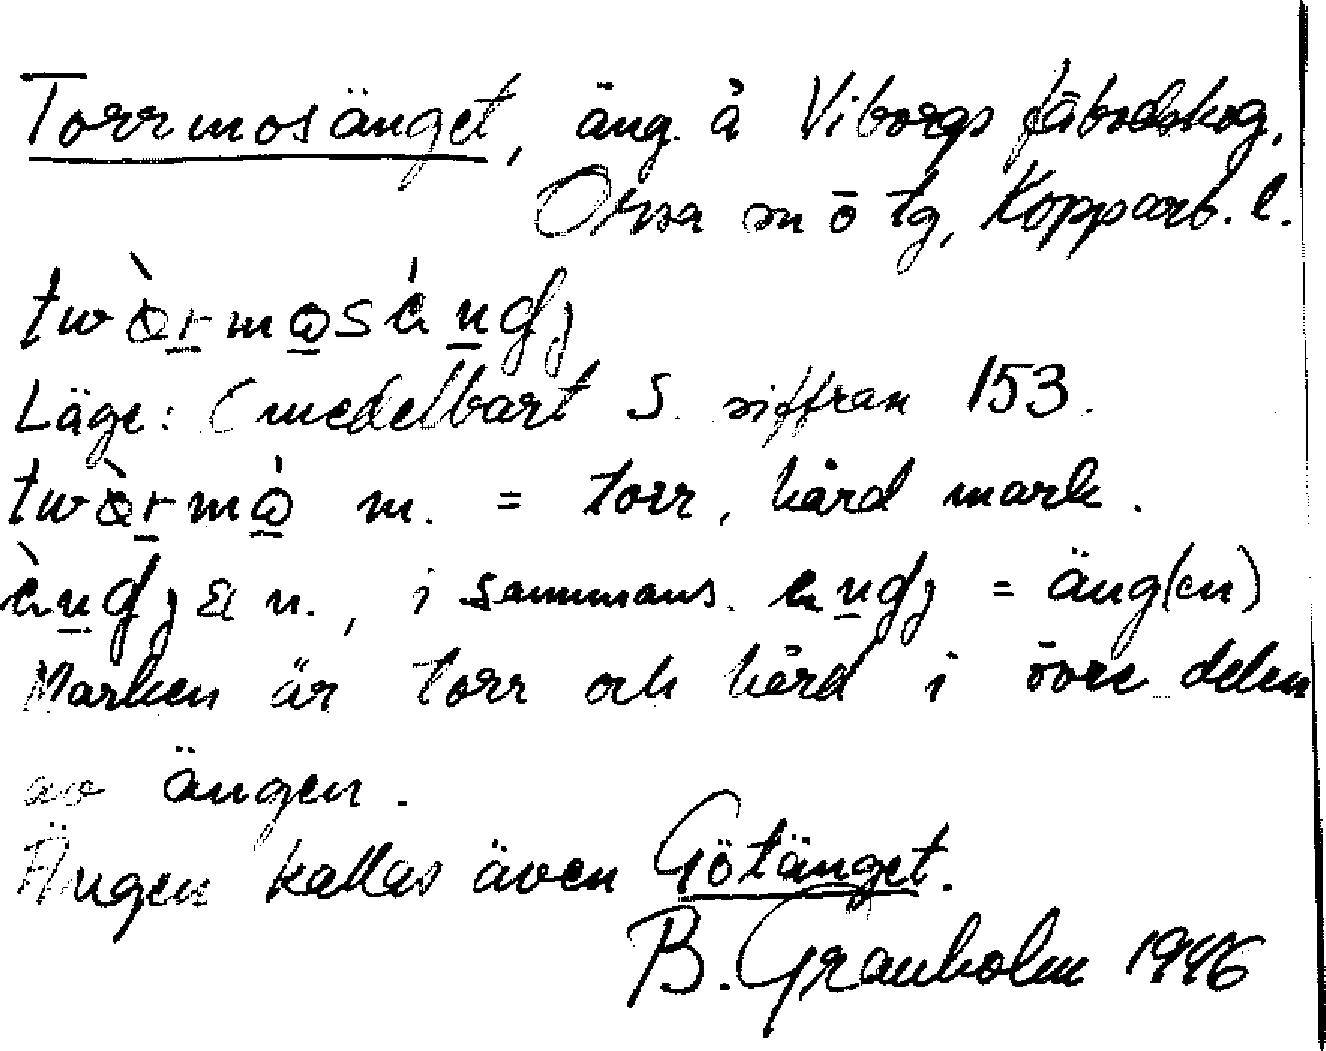 Torrmosänget, äng å Viborgs fäbodskog,
Orsa sn ö tg, Kopparb. l.
Läge: (medelbart S. siffran 153.
m. = torr, hård mark.
n., i sammans. = äng(en)
Marken är torr och hård i övre delen
av ängen.
Ängen kallas även Götänget.
B. Granholm 1946